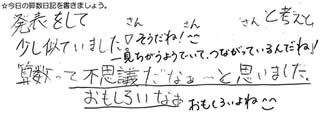 ☆今日の算数日記を書きましょう。
発表をして　　　さん　　　さん　　　さんと考えと、
少し似ていました♡そうだね!
一見ちがうようでいて、つながっているんだね♪
算数って不思議だなぁ…と思いました。
おもしろいなぁ おもしろいよね